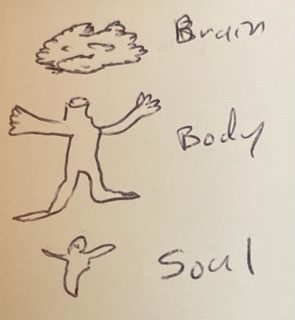 Brain
Body
Soul